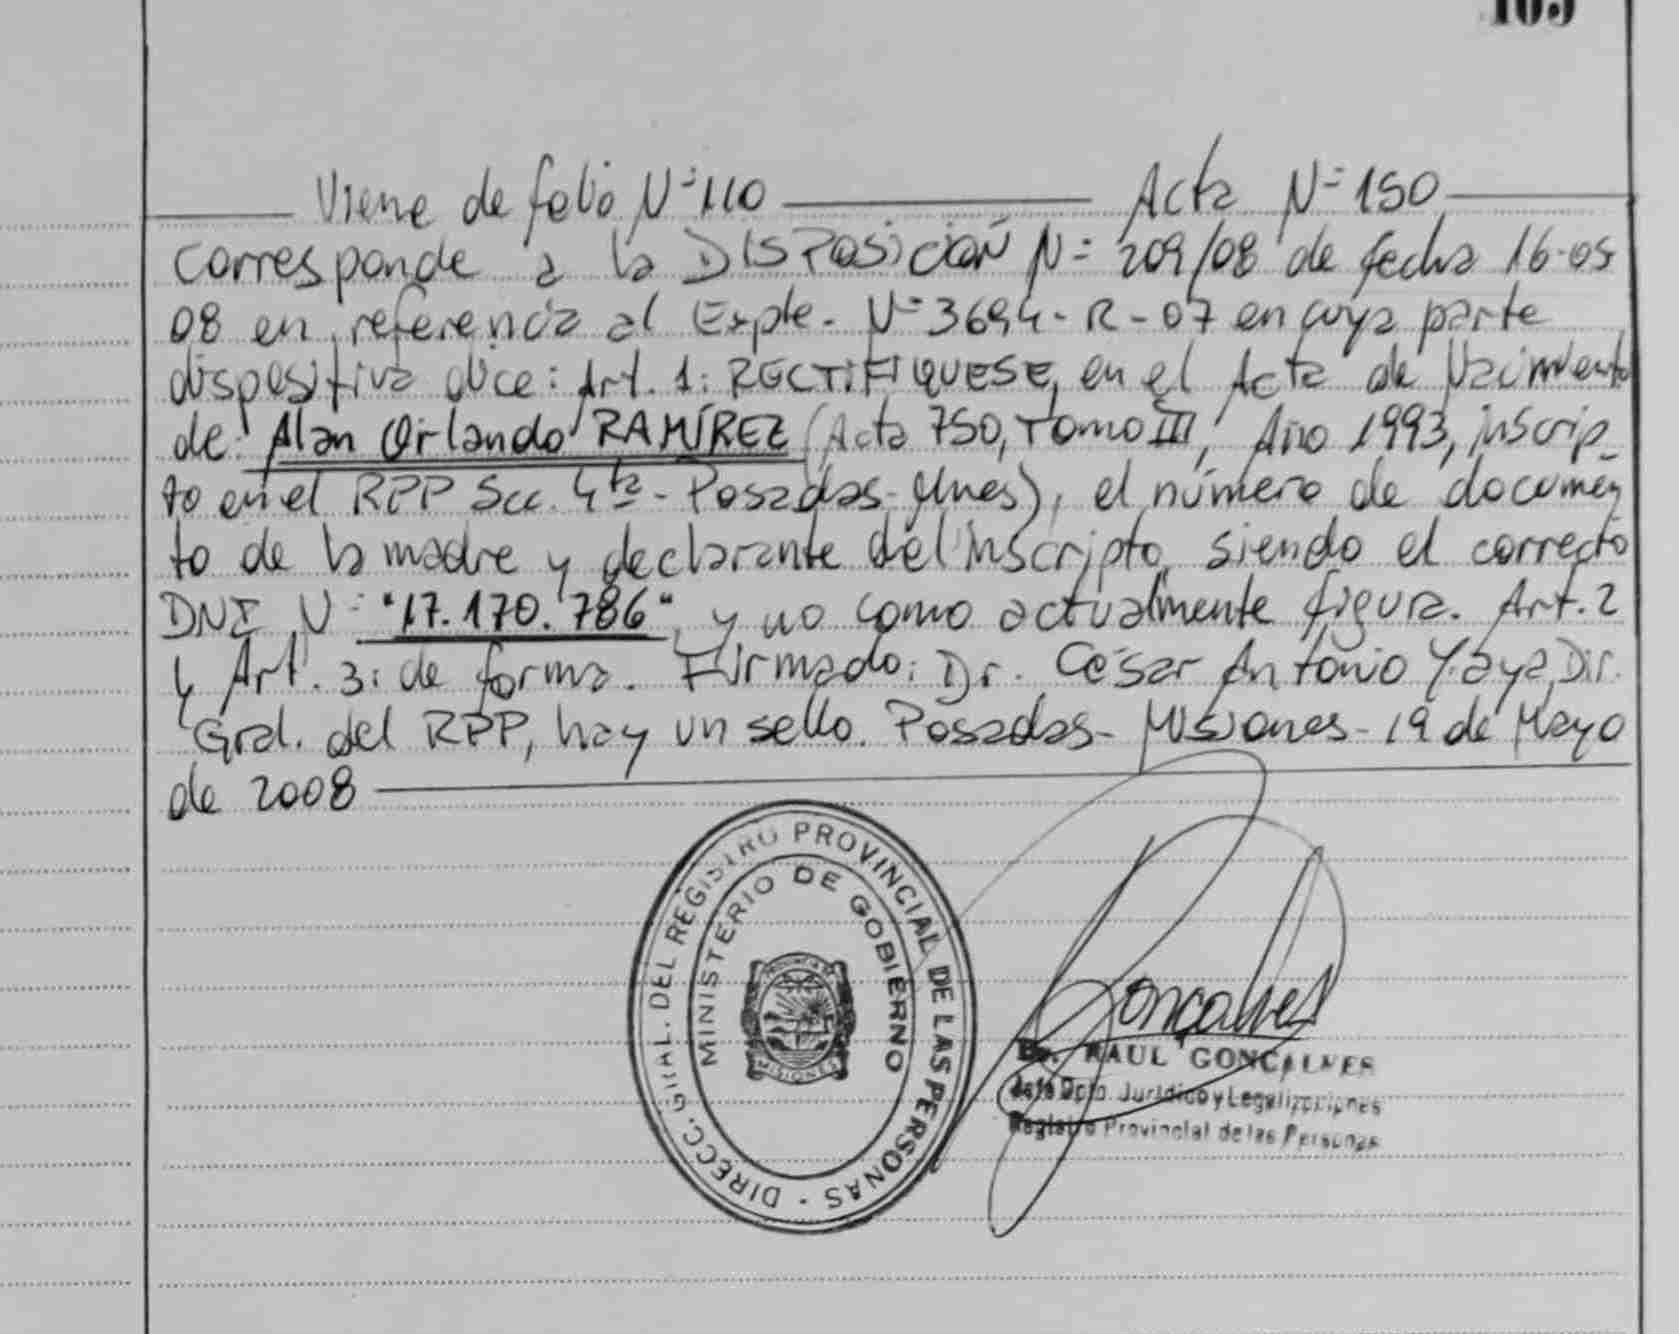 105
Viene de folio Nº 110 Acta Nº 150
Corresponde a la DISPOSICIÓN Nº 209/08 de fecha 16-05
08 en referencia al Expte. Nº 3694-R-07 en cuya parte
dispositiva dice: Art. 1: RECTIFIQUESE, en el Acta de Nacimiento
de: Alan Orlando RAMÍREZ (Acta 750, Tomo III, Año 1993, inscrip-
to en el RPP Scc. 4ta - Posadas - Mnes), el número de documen
to de la madre y declarante del inscripto, siendo el correcto
DNI Nº "17.170.786", y no como actualmente figura. Art. 2
y Art. 3: de forma. Firmado: Dr. César Antonio Yaya, Dir.
Gral. del RPP, hay un sello. Posadas - Misiones - 19 de Mayo
de 2008
DIRECC. GRAL. DEL REGISTRO PROVINCIAL DE LAS PERSONAS -
MINISTERIO DE GOBIERNO
PROVINCIA DE
MISIONES
Goncalves
Dr. RAUL GONCALVES
Jefe Dpto. Jurídico y Legalizaciones
Registro Provincial de las Personas